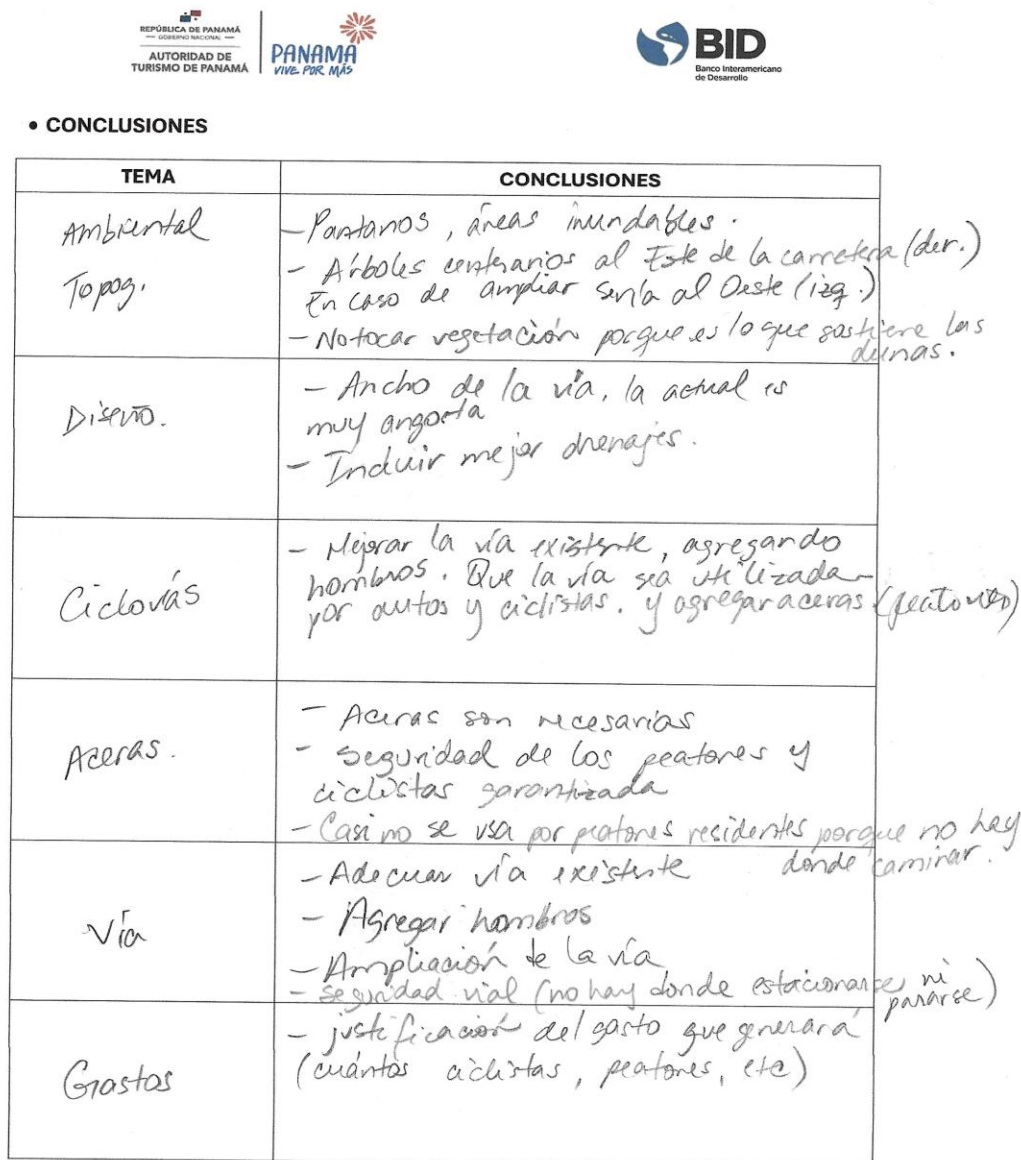 REPÚBLICA DE PANAMÁ
— GOBIERNO NACIONAL —
AUTORIDAD DE
TURISMO DE PANAMÁ
PANAMA
VIVE POR MÁS
BID
Banco Interamericano
de Desarrollo
• CONCLUSIONES
TEMA
CONCLUSIONES
Ambiental
Topog.
- Pantanos, áreas inundables.
- Árboles centenarios al Este de la carretera (der.)
En caso de ampliar sería al Oeste (izq.)
- No tocar vegetación porque es lo que sostiene las
dunas.
Diseño.
- Ancho de la vía, la actual es
muy angosta
- Incluir mejor drenajes.
Ciclovás
- Mejorar la vía existente, agregando
hombros. Que la vía sea utilizada
por autos y ciclistas. y agregar aceras (peatones)
Aceras.
- Aceras son necesarias
- Seguridad de los peatones y
ciclistas garantizada
- Casi no se usa por peatones residentes porque no hay
donde caminar.
Vía
- Adecuar vía existente
- Agregar hombros
- Ampliación de la vía
- seguridad vial (no hay donde estacionarse ni
pararse)
Gastos
- justificación del gasto que generará
(cuántos ciclistas, peatones, etc)